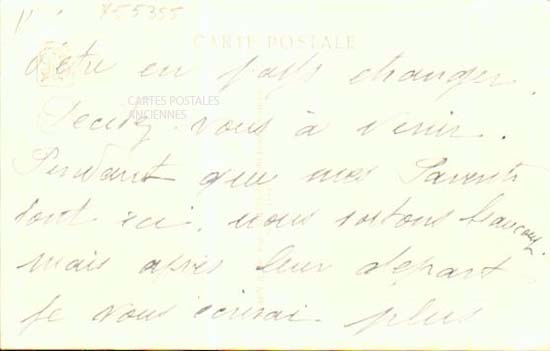 X55355
CARTE POSTALE
d'être en pays étranger.
CARTES POSTALES
ANCIENNES
Décidez-vous à venir.
Pendant que mes Parents
sont ici, nous sortons beaucoup,
mais après leur départ
je vous écrirai plus